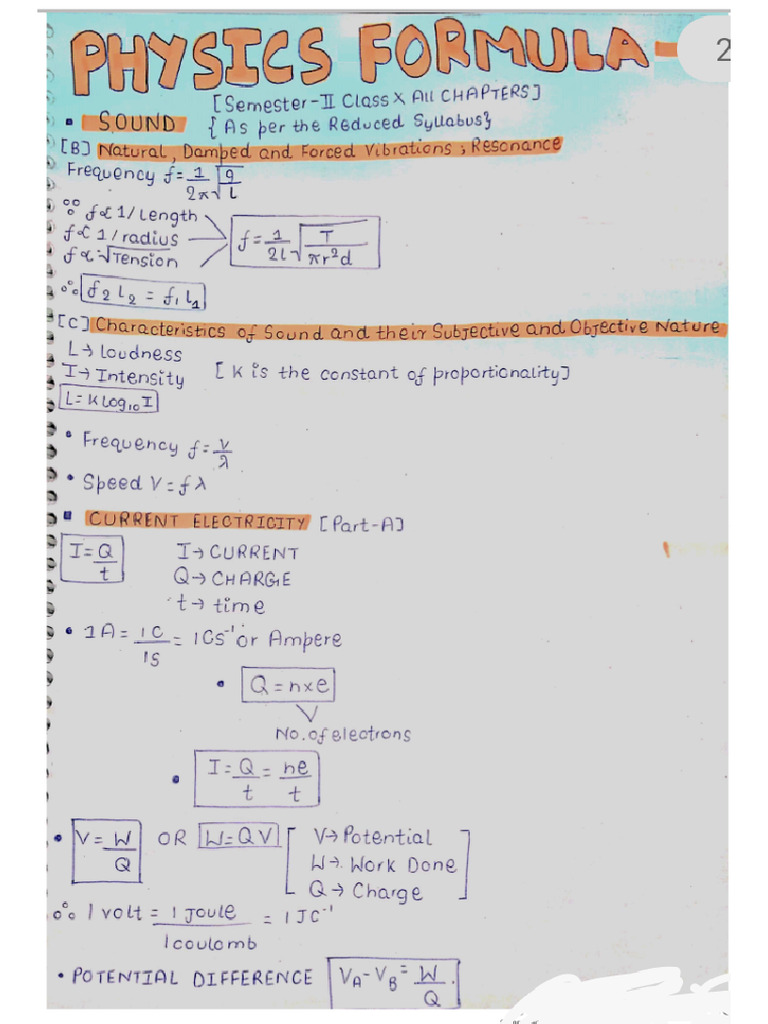 PHYSICS FORMULA-
2
[Semester-II Class X All CHAPTERS]
▪ SOUND {As per the Reduced Syllabus}
[B] Natural, Damped and Forced Vibrations; Resonance
Frequency f = 1/2π √g/l
∵ f ∝ 1/Length
f ∝ 1/radius
f ∝ √Tension
f = 1/2l √T/πr²d
∴ f₂ L₂ = f₁ L₁
[C] Characteristics of Sound and their Subjective and Objective Nature
L → loudness
I → Intensity [K is the constant of proportionality]
L = K log₁₀ I
• Frequency f = V/λ
• Speed V = fλ
▪ CURRENT ELECTRICITY [Part-A]
I = Q/t I → CURRENT
Q → CHARGE
t → time
• 1A = 1C/1S = 1CS⁻¹ or Ampere
• Q = n×e
No. of electrons
• I = Q/t = ne/t
• V = W/Q OR W = QV [V → Potential
W → Work Done
Q → Charge]
∴ 1 volt = 1 joule/1 coulomb = 1 JC⁻¹
• POTENTIAL DIFFERENCE V_A - V_B = W/Q.